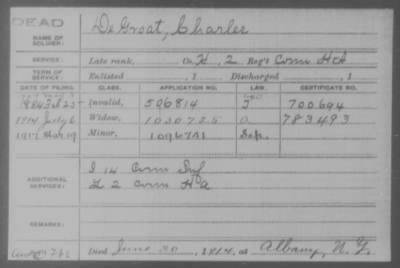 DEAD
NAME OF SOLDIER:
De Groat, Charles
SERVICE:
Late rank, Co. H, 2 Reg't Conn H A
TERM OF SERVICE:
Enlisted , 1 Discharged , 1
DATE OF FILING. CLASS. APPLICATION NO. LAW. CERTIFICATE NO.
Invalid, 596814 700694
1914 July 6 Widow, 1030725 783493
Minor,
ADDITIONAL SERVICES:
I 14 Conn Inf
L 2 Conn H A
REMARKS:
Died June 30, 1914, at Albany, N. Y.